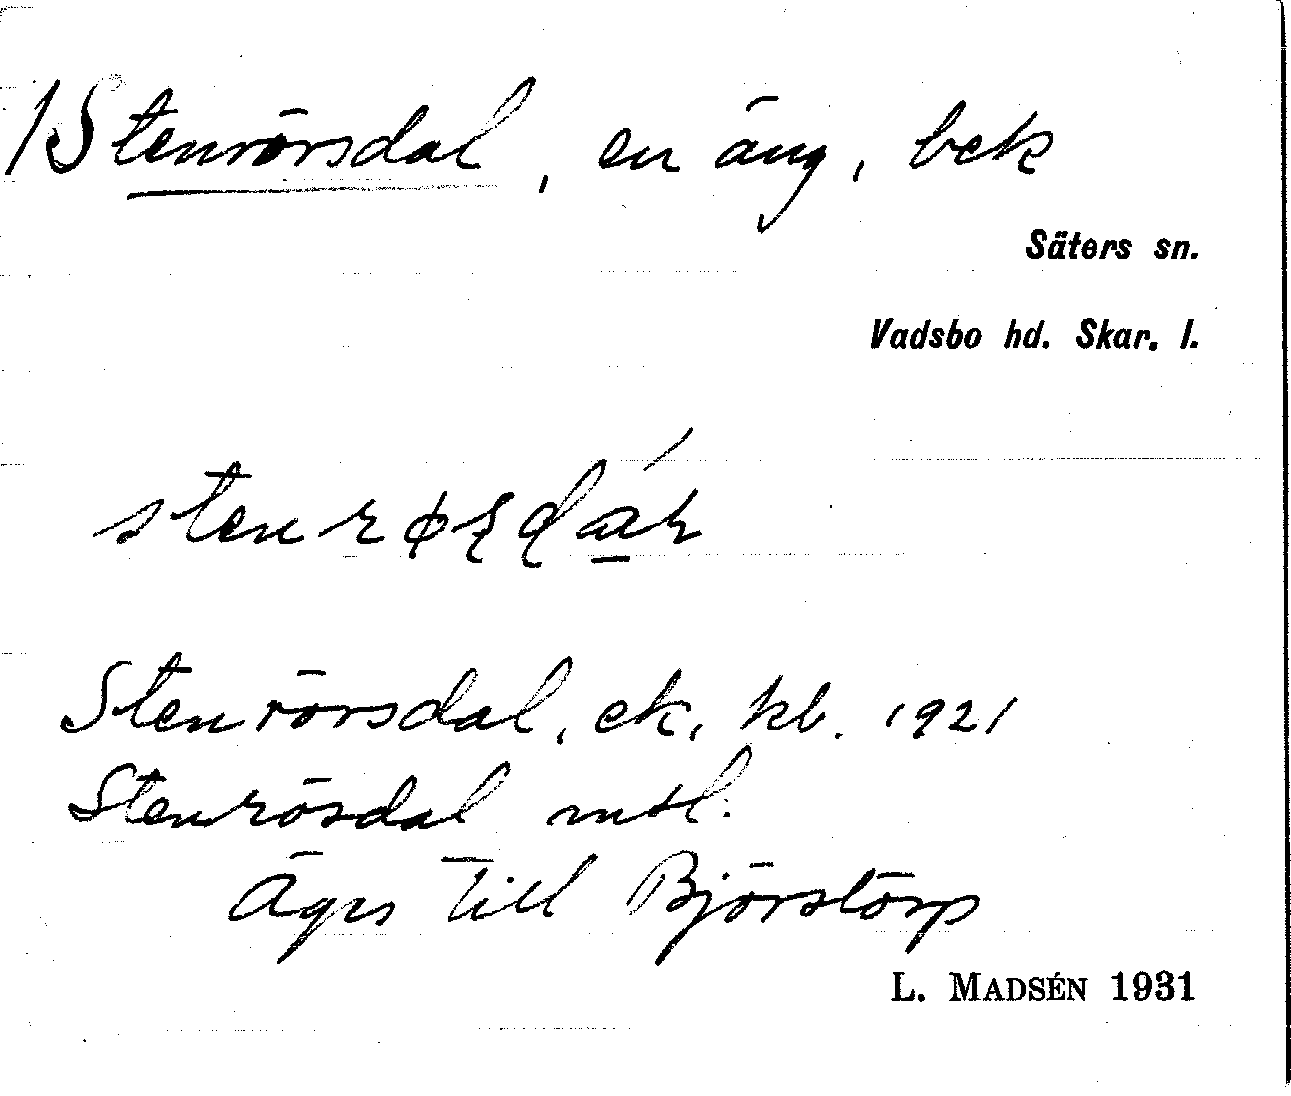 1) Stenrörsdal, en äng, bek
Säters sn.
Vadsbo hd. Skar. l.
Stenrörsdal, ek. kb. 1921
Stenrösdal mtl.
Äges till Björstorp
L. MADSÉN 1931